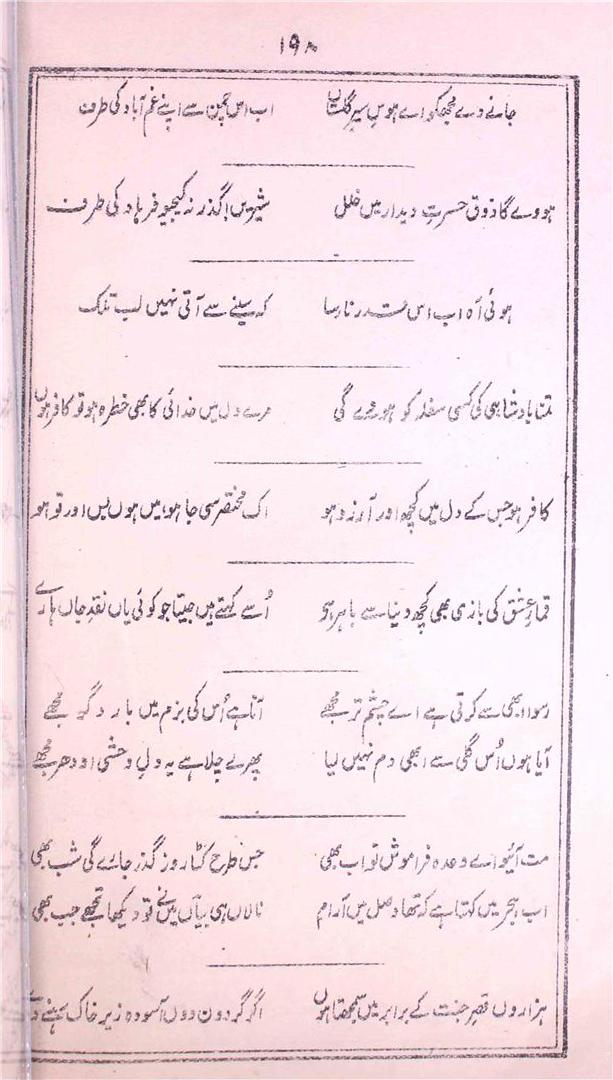 ۱۹۸
جانے دے مجھکو اے ہوس سیر گلستاں اب اس چمن سے اپنے غم آباد کی طرف
ہووے گا ذوق حسرت دیدار میں خلل شیریں گذر نہ کیجیو فرہاد کی طرف
ہوئی آہ اب اس قدر نارسا کہ سینے سے آتی نہیں لب تلک
تمنا بادشاہی کی کسی سفلہ کو ہووے گی مرے دل میں خدائی کا بھی خطرہ ہو تو کافر ہوں
کافر ہو جس کے دل میں کچھ اور آرزو ہو اک مختصر سی جا ہو، میں ہوں بس اور تو ہو
قمار عشق کی بازی بھی کچھ دنیا سے باہر ہو اُسے کہتے ہیں جیتا جو کوئی یاں نقد جاں ہارے
رسوا ابھی سے کرتی ہے اے چشم تر مجھے آنا ہے اُس کی بزم میں بار دگر مجھے
آیا ہوں اُس گلی سے ابھی دم نہیں لیا پھرے چلا ہے یہ دل وحشی اودھر مجھے
مت آئیو اے وعدہ فراموش تو اب بھی جس طرح کٹا روز گذر جاے گی شب بھی
اب ہجر میں کہتا ہے کہ تھا وصل میں آرام نالاں ہی بیاںؔ میں نے تو دیکھا تجھے جب بھی
ہزاروں قصر جنت کے برابر میں سمجھتا ہوں اگر گردون دوں آسودہ زیر خاک رہنے دے